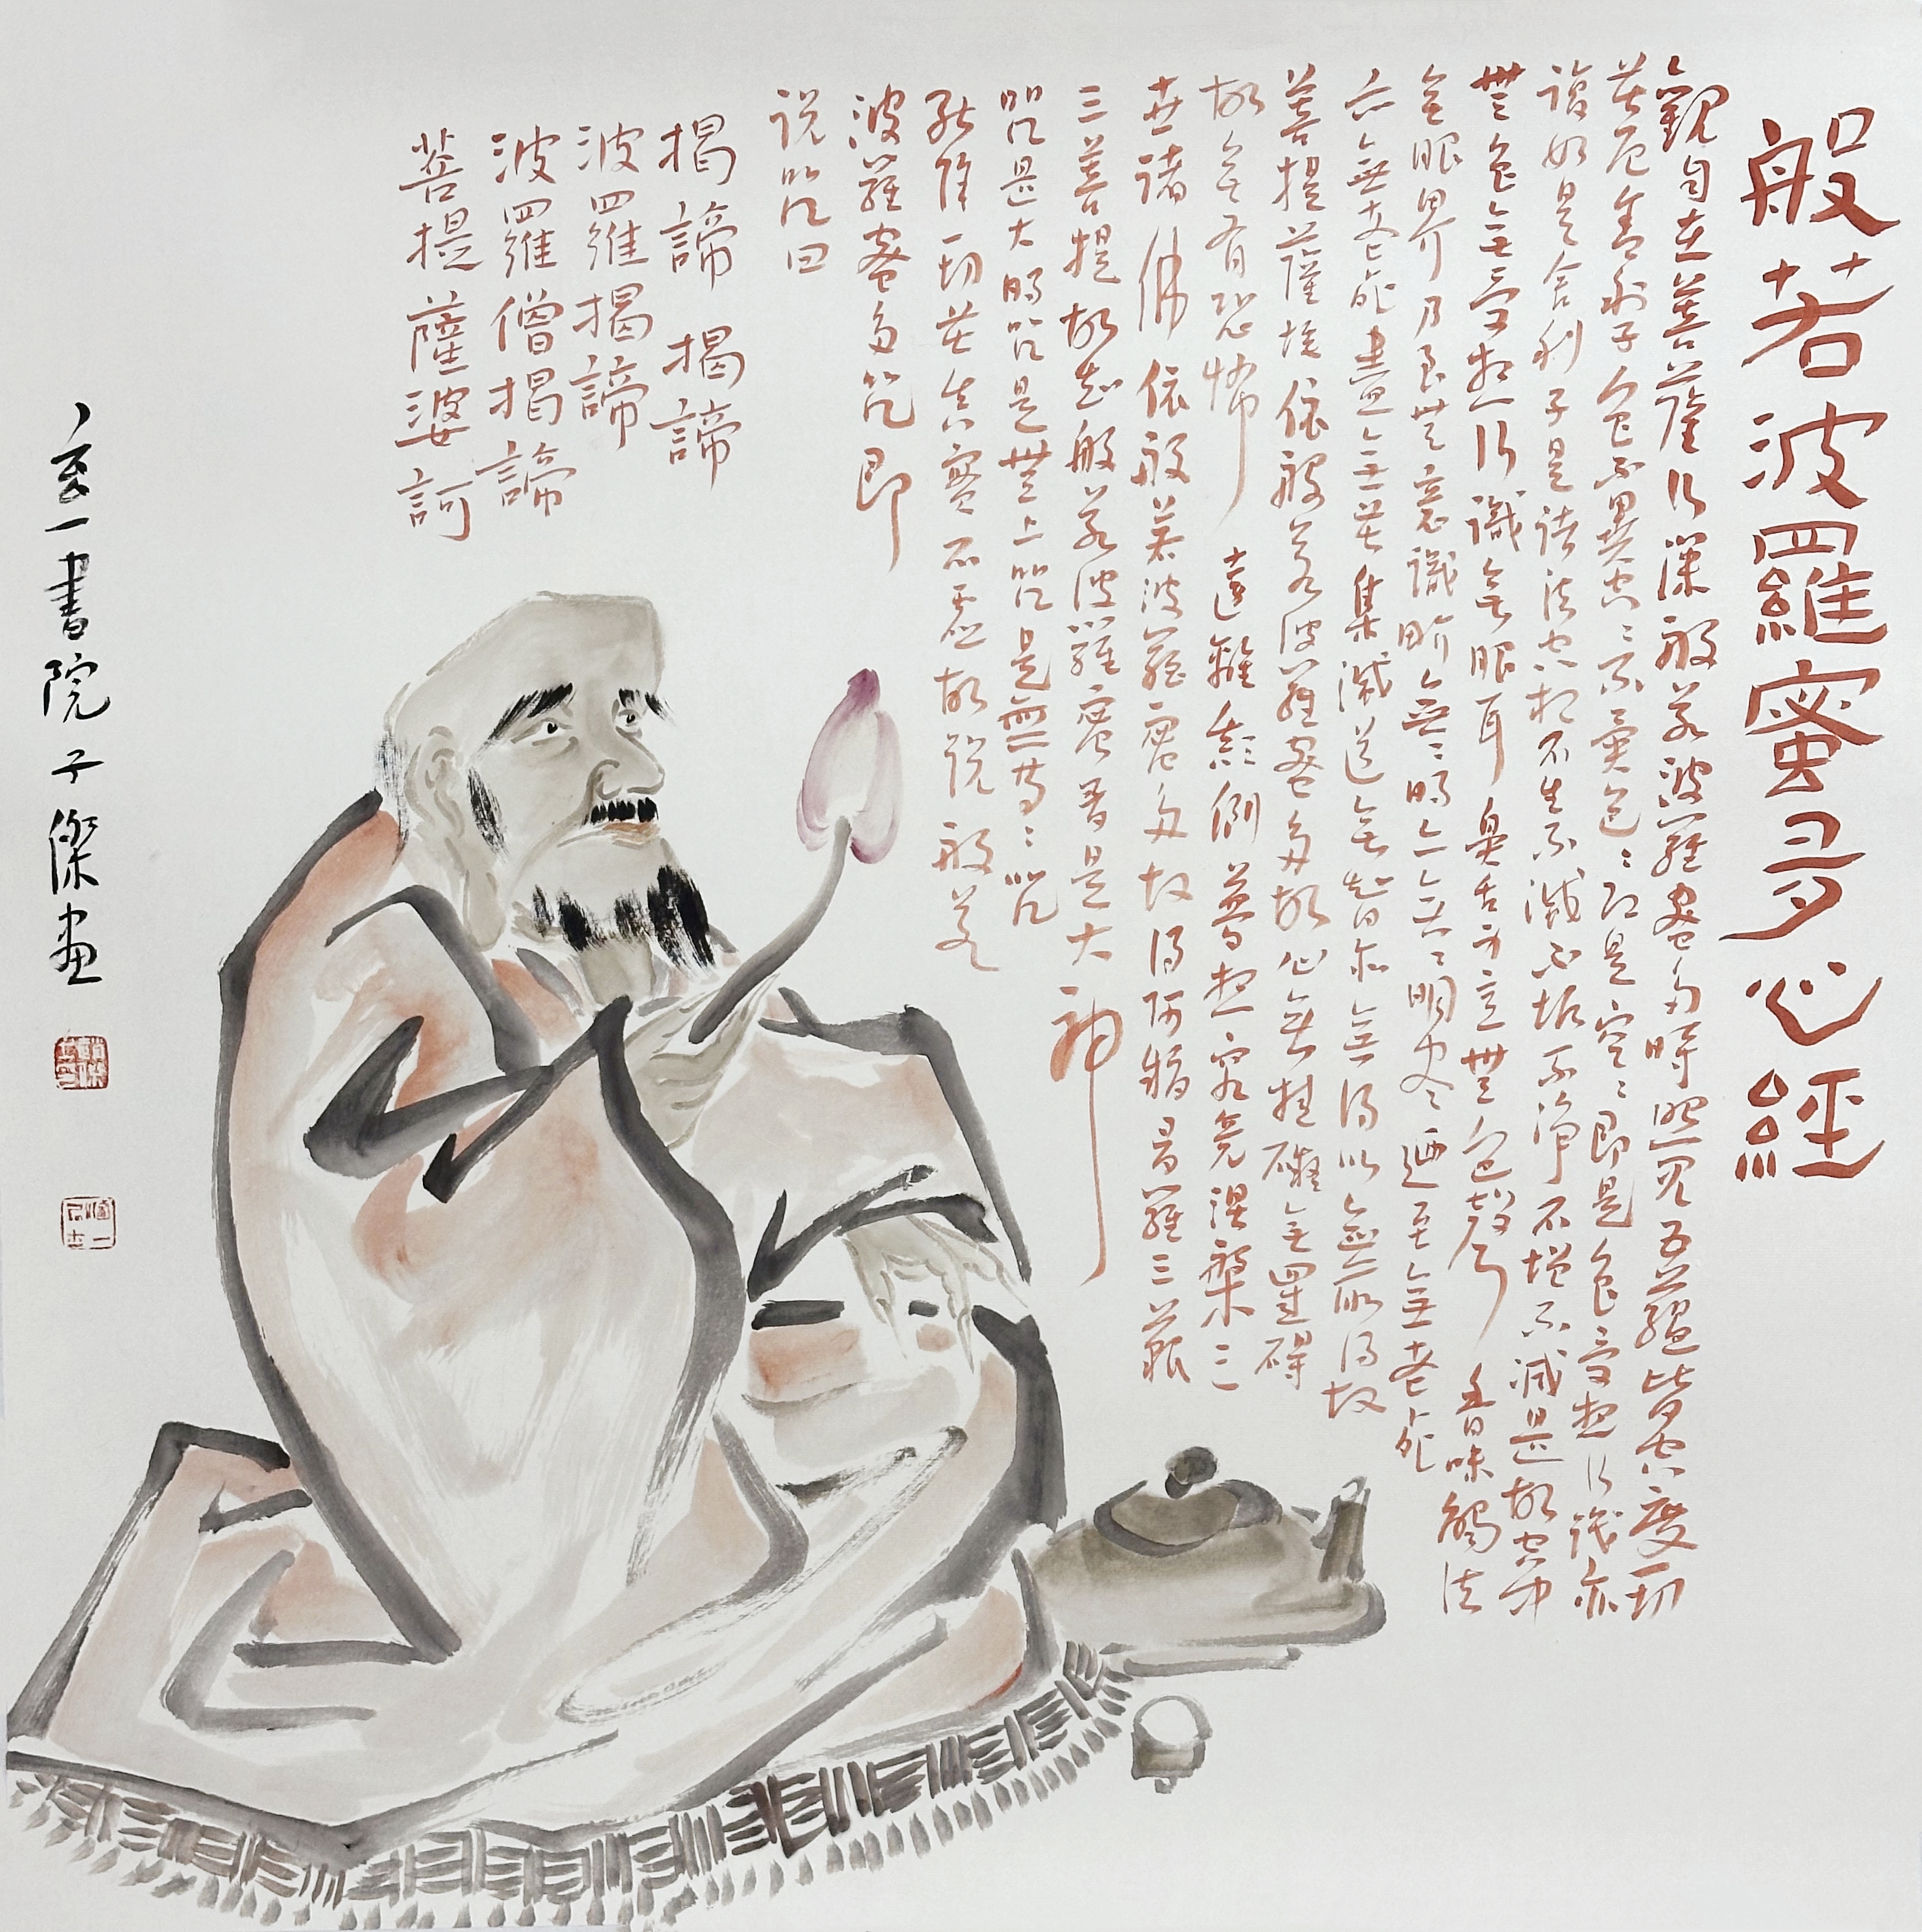 般若波羅蜜多心經
觀自在菩薩行深般若波羅蜜多時照見五蘊皆空度一切
苦厄舍利子色不異空〻不異色〻即是空〻即是色受想行識亦
復如是舍利子是諸法空相不生不滅不垢不淨不增不減是故空中
無色無受想行識無眼耳鼻舌身意無色聲香味觸法
無眼界乃至無意識界無〻明亦無〻明盡迺至無老死
亦無老死盡無苦集滅道無智亦無得以無所得故
菩提薩埵依般若波羅蜜多故心無掛礙無罣礙
故無有恐怖遠離顛倒夢想究竟涅槃三
世諸佛依般若波羅蜜多故得阿耨多羅三藐
三菩提故知般若波羅蜜多是大神
咒是大明咒是無上咒是無等〻咒
能除一切苦真實不虛故說般若
波羅蜜多咒即
說咒曰
揭諦揭諦
波羅揭諦
波羅僧揭諦
菩提薩婆訶
玄一書院子傑畫